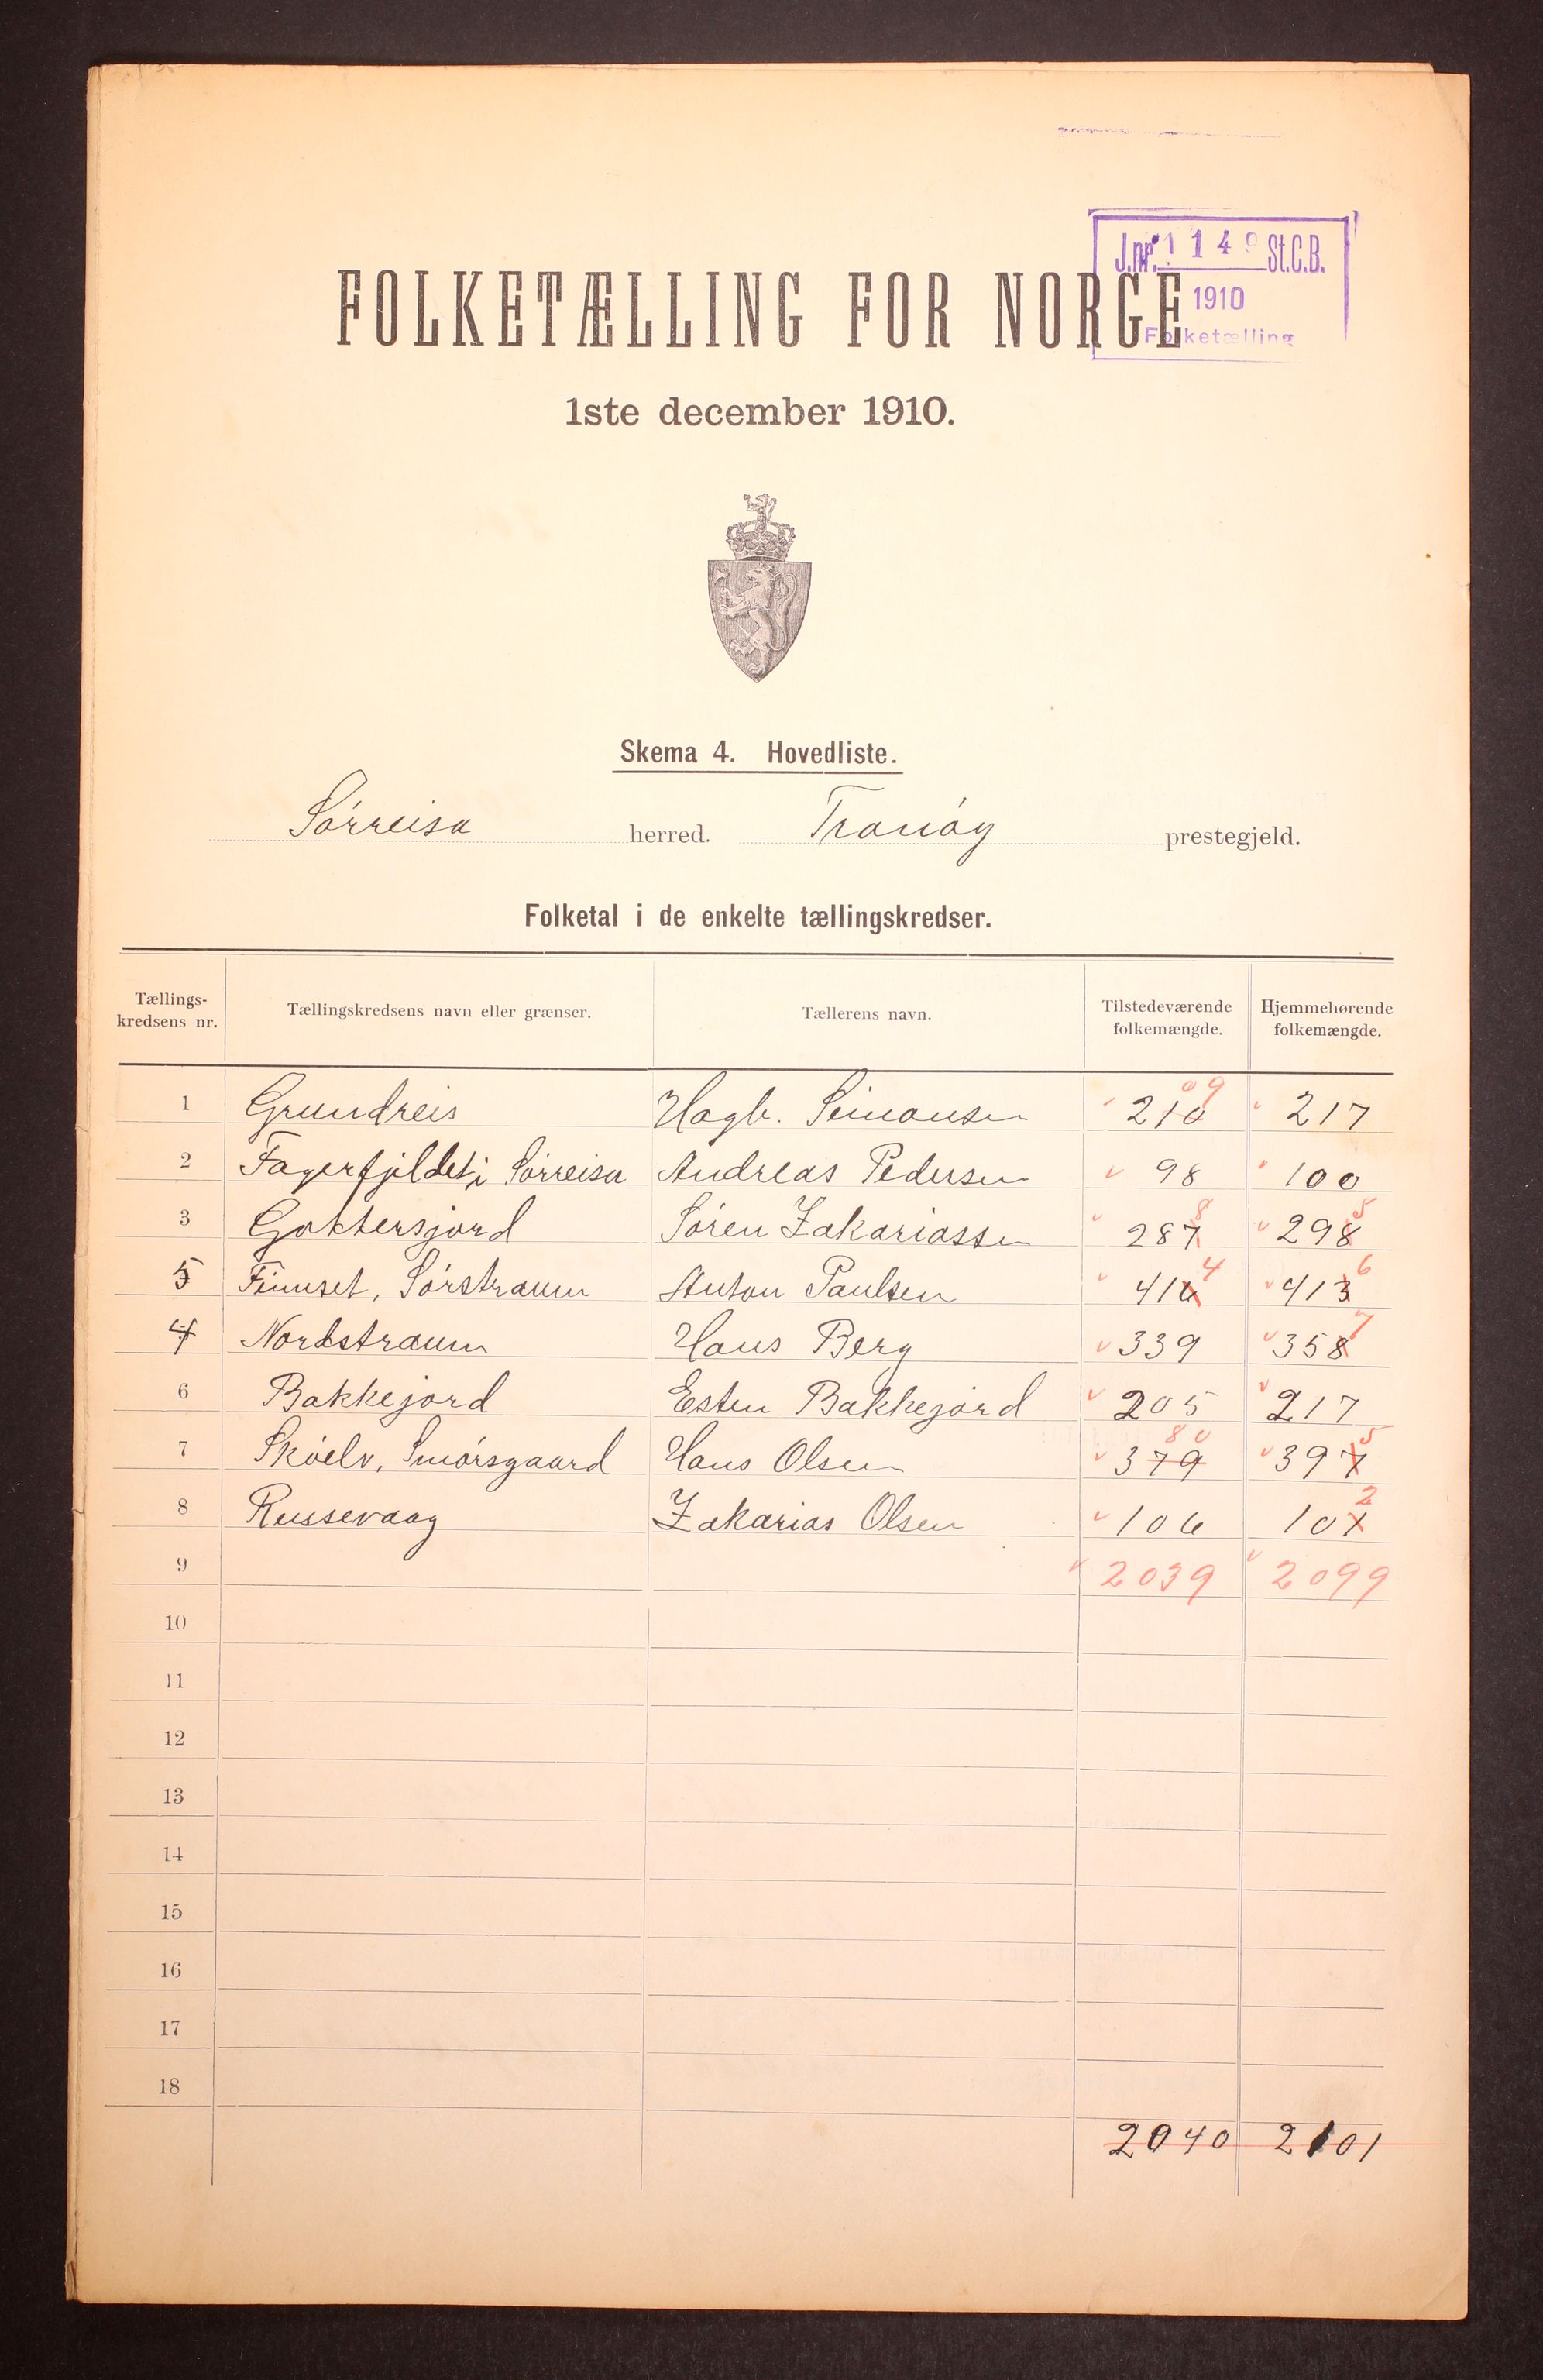 J.nr. 1149 St.C.B.
1910
Folketælling
FOLKETÆLLING FOR NORGE
1ste december 1910.
Skema 4. Hovedliste.
Sórreisa herred. Tranóy prestegjeld.
Folketal i de enkelte tællingskredser.
Tællings-kredsens nr. Tællingskredsens navn eller grænser. Tællerens navn. Tilstedeværende folkemængde. Hjemmehørende folkemængde.
09
1 Grundreis Hagb. Simonsen 210 217
2 Fagerfjeldet i Sórreisa Andreas Pedersen 98 100
8 5
3 Gottersjord Sóren Zakariassen 287 298
4 6
5 Finnset, Sórstraum Anton Paulsen 416 413
7
4 Nordstraum Hans Berg 339 358
6 Bakkejord Esten Bakkejord 205 217
80 5
7 Skóelv, Smórsgaard Hans Olsen 379 397
2
8 Russevaag Zakarias Olsen 106 101
9 2039 2099
10
11
12
13
14
15
16
17
18
2040 2101